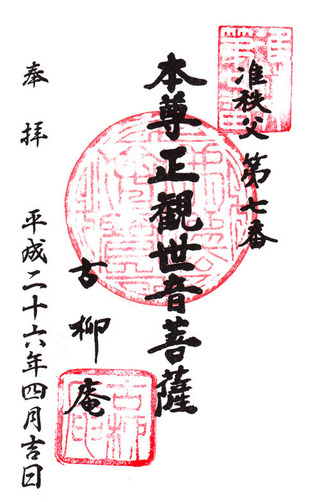 准秩父第七番
本尊正觀世音菩薩
古柳庵
奉拝
平成二十六年四月吉日